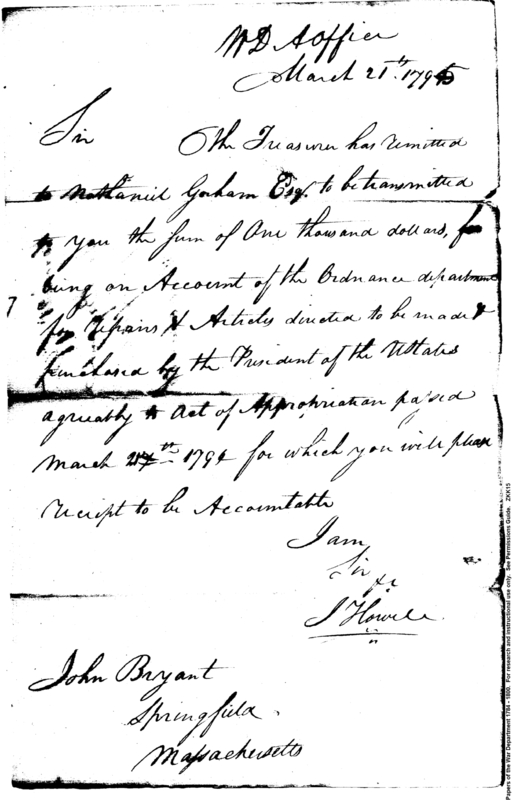 W D A Office
March 21th. 1795
Sir The Treasurer has remitted
to Nathaniel Gorham Esqr. to be transmitted
to you the sum of One thousand dollars, for
being on Account of the Ordnance department
for repairs & Articles directed to be made &
purchased by the President of the UStates
agreeably to Act of Appropriation passed
March 21th 1794 for which you will please
receipt to be Accountable
I am
Sir
&c
J Howell
John Bryant
Springfield
Massachusetts
7
Papers of the War Department 1784 - 1800. For research and instructional use only. See Permissions Guide. ZKK15